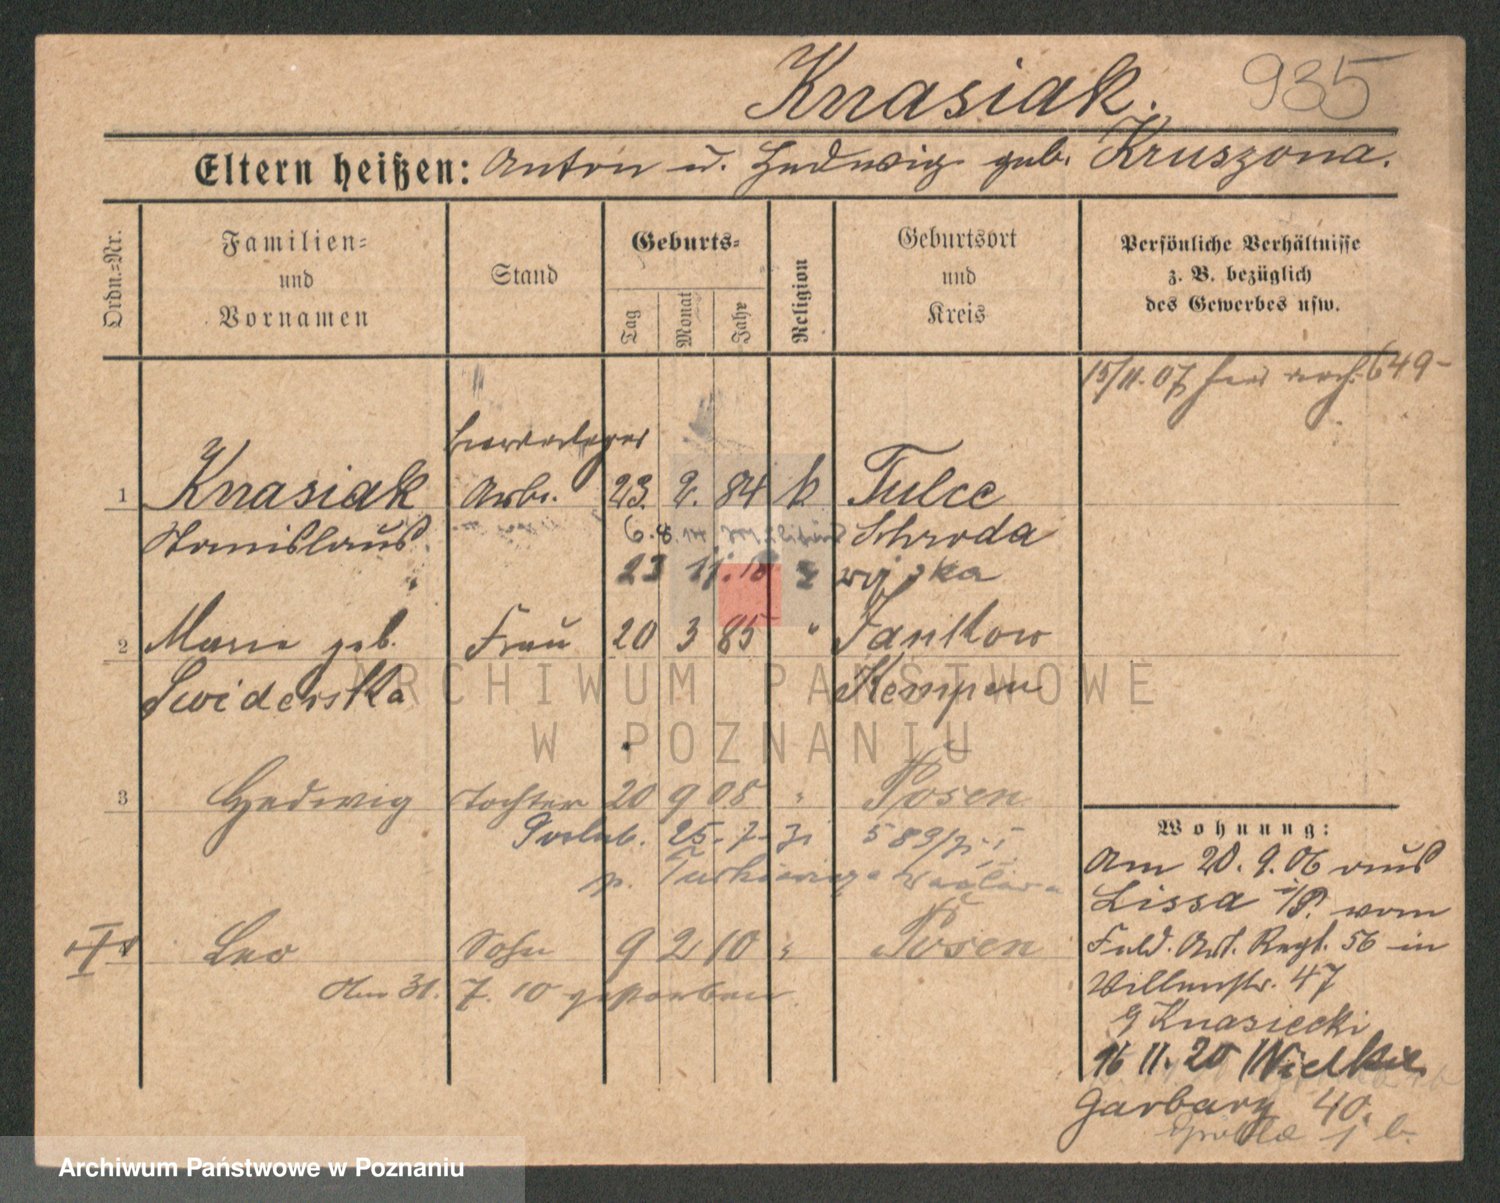 Knasiak. 935
Eltern heißen: Anton u. Hedwig geb. Kruszona.
Ordn.=Nr.
Familien=
und
Vornamen
Stand
Geburts=
Tag
Monat
Jahr
Religion
Geburtsort
und
Kreis
Persönliche Verhältnisse
z. B. bezüglich
des Gewerbes usw.
15/11.07 649-
1 Knasiak Arb. 23. 2. 84 k. Tulce
Stanislaus 6.8.14 Militär Schroda
23 11.18 z wojska
2 Marie geb. Frau 20 3 85 " Jankow
Swiderska Kempen
3 Hedwig Tochter 20 9 08 " Posen
25. 7. 31 589/31
Leo Sohn 9 2 10 " Posen
Am 31. 7. 10 gestorben
Wohnung:
Am 20.9.06 aus
Lissa i/P. vom
Feld. Art. Regt. 56 in
47
Knasiecki
16 11. 20 Wielkie
Garbary 40.
Grobla
ARCHIWUM PAŃSTWOWE
W POZNANIU
Archiwum Państwowe w Poznaniu